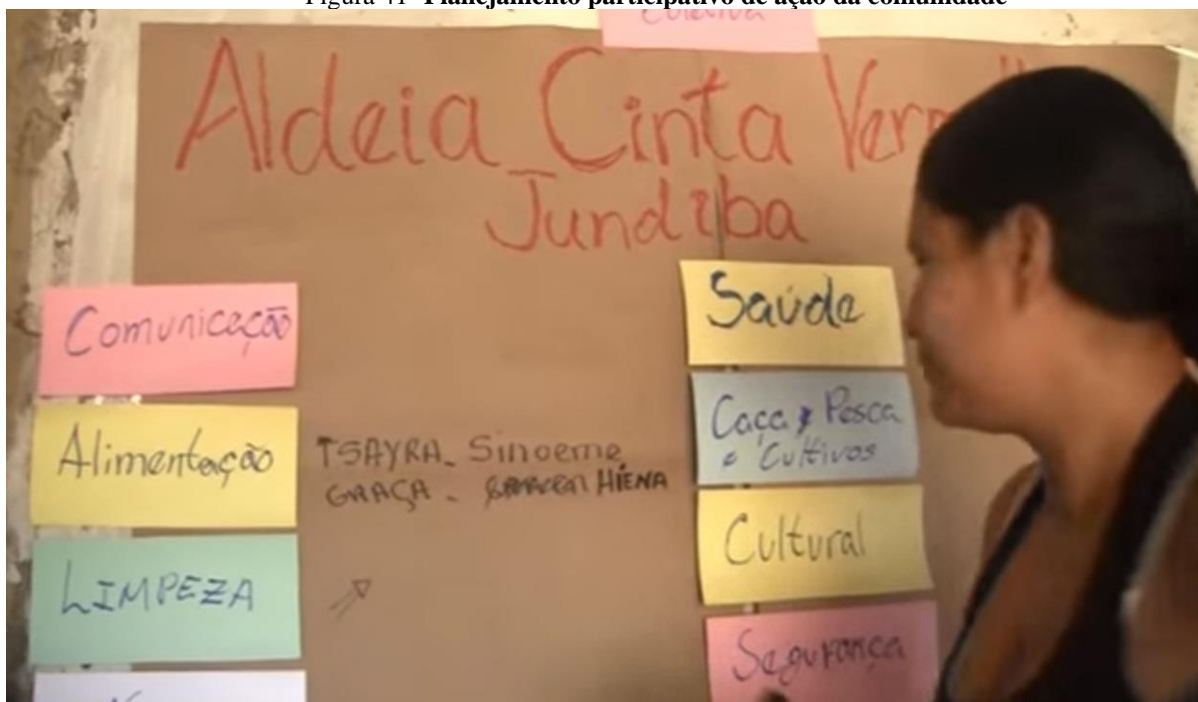 Planejamento participativo de ação da comunidade
Aldeia Cinta Verm
Jundiba
Comunicação
Alimentação
TSAYRA - Sinoeme
GRAÇA - HIENA
LIMPEZA
Saúde
Caça e Pesca
e Cultivos
Cultural
Segurança